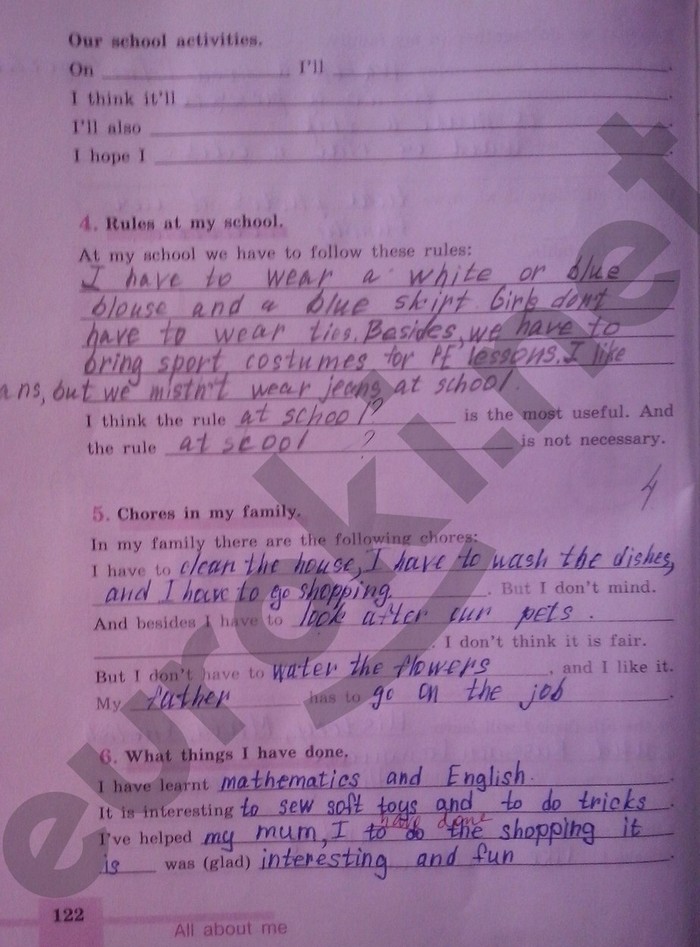 Our school activities.
On ____ I'll ____.
I think it'll ____.
I'll also ____.
I hope I ____.
4. Rules at my school.
At my school we have to follow these rules:
I have to wear a white or blue
blouse and a blue skirt. Girls don't
have to wear ties. Besides, we have to
bring sport costumes for PE lessons. I like
ans, but we mistn't wear jeans at school.
I think the rule at school? is the most useful. And
the rule at scool ? is not necessary.
4
5. Chores in my family.
In my family there are the following chores:
I have to clean the house, I have to wash the dishes,
and I have to go shopping. But I don't mind.
And besides I have to look after our pets.
____. I don't think it is fair.
But I don't have to water the flowers, and I like it.
My father has to go on the job.
6. What things I have done.
I have learnt mathematics and English.
It is interesting to sew soft toys and to do tricks.
have done
I've helped my mum, I to do the shopping it
is was (glad) interesting and fun.
122
All about me
euroki.net